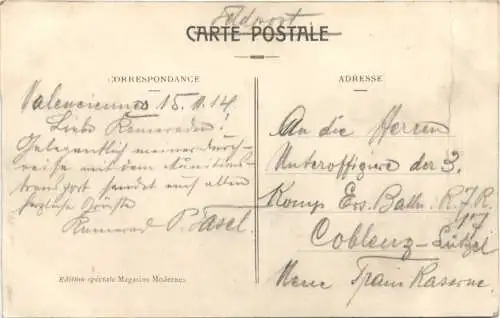 Feldpost
CARTE POSTALE
CORRESPONDANCE
Valenciennes 15.11.14.
Liebe Kameraden!
Gelegentlich meiner Durch-
reise mit dem Munitions-
transport sendet euch allen
herzliche Grüsse
Kamerad P. Fasel.
Edition spéciale Magasins Modernes
ADRESSE
An die Herren
Unteroffiziere der 3.
Komp Ers. Batln. R.J.R.
Coblenz-Lützel
Neue Train Kaserne.